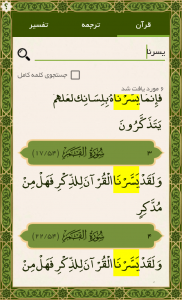 قرآن ترجمه تفسیر
یسرنا
جستجوی کلمه کامل
۶ مورد یافت شد
فَإِنَّمَا يَسَّرْنَاهُ بِلِسَانِكَ لَعَلَّهُمْ
يَتَذَكَّرُونَ
۳ سُورَةُ القَمَر (۱۷/۵۴)
وَلَقَدْ يَسَّرْنَا الْقُرْآنَ لِلذِّكْرِ فَهَلْ مِنْ
مُدَّكِرٍ
۴ سُورَةُ القَمَر (۲۲/۵۴)
وَلَقَدْ يَسَّرْنَا الْقُرْآنَ لِلذِّكْرِ فَهَلْ مِنْ